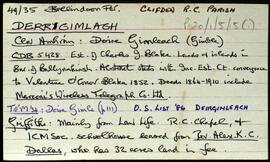 49/35 Ballindoon Par. CLIFDEN R.C. PARISH
DERRIGIMLAGH P20/1/5/5(
Cen Anthrim: Doire Gimleach (Gimlea)
CDB 5428. Est. of Charles J. Blake. Lands of islands in
Bar. of Ballynahinch. Abstract states is Inc. Est. Ct. conveyance
to Valentine O'Connor Blake 1852. Deeds 1861-1910 include
Marconi's Wireless Telegraph Co. Ltd
D.S. LIST '86 DERRGIMLAGH
Griffiths: Mainly from Law Life. R.C. Chapel, &
ICM Soc. schoolhouse leased from Rev Alex. R.C.
Dallas, who has 32 acres land in fee.